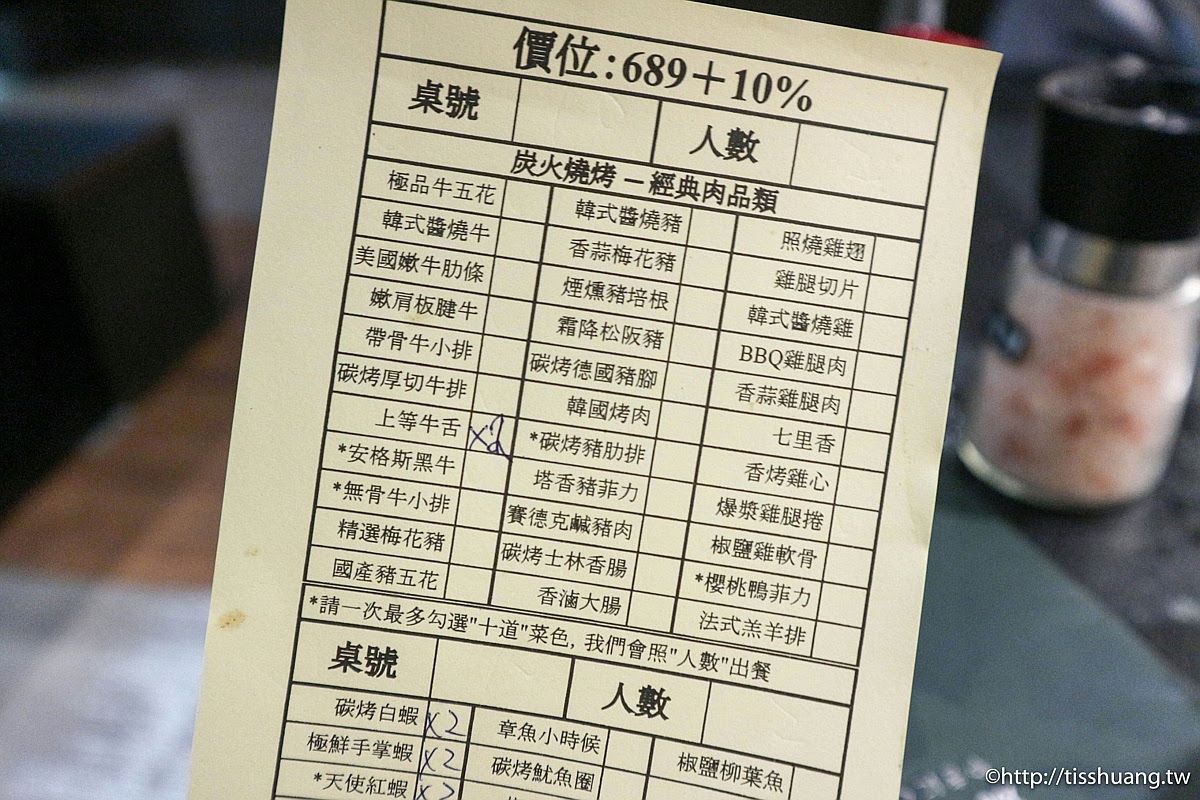 價位:689+10%
桌號 人數
炭火燒烤－經典肉品類
極品牛五花 韓式醬燒豬 照燒雞翅
韓式醬燒牛 香蒜梅花豬 雞腿切片
美國嫩牛肋條 煙燻豬培根 韓式醬燒雞
嫩肩板腱牛 霜降松阪豬 BBQ雞腿肉
帶骨牛小排 碳烤德國豬腳 香蒜雞腿肉
碳烤厚切牛排 韓國烤肉 七里香
上等牛舌 x2 *碳烤豬肋排 香烤雞心
*安格斯黑牛 塔香豬菲力 爆漿雞腿捲
*無骨牛小排 賽德克鹹豬肉 椒鹽雞軟骨
精選梅花豬 碳烤士林香腸 *櫻桃鴨菲力
國產豬五花 香滷大腸 法式羔羊排
*請一次最多勾選"十道"菜色, 我們會照"人數"出餐
桌號 人數
碳烤白蝦 x2 章魚小時候 椒鹽柳葉魚
極鮮手掌蝦 x2 碳烤魷魚圈
*天使紅蝦 x2
©http://tisshuang.tw